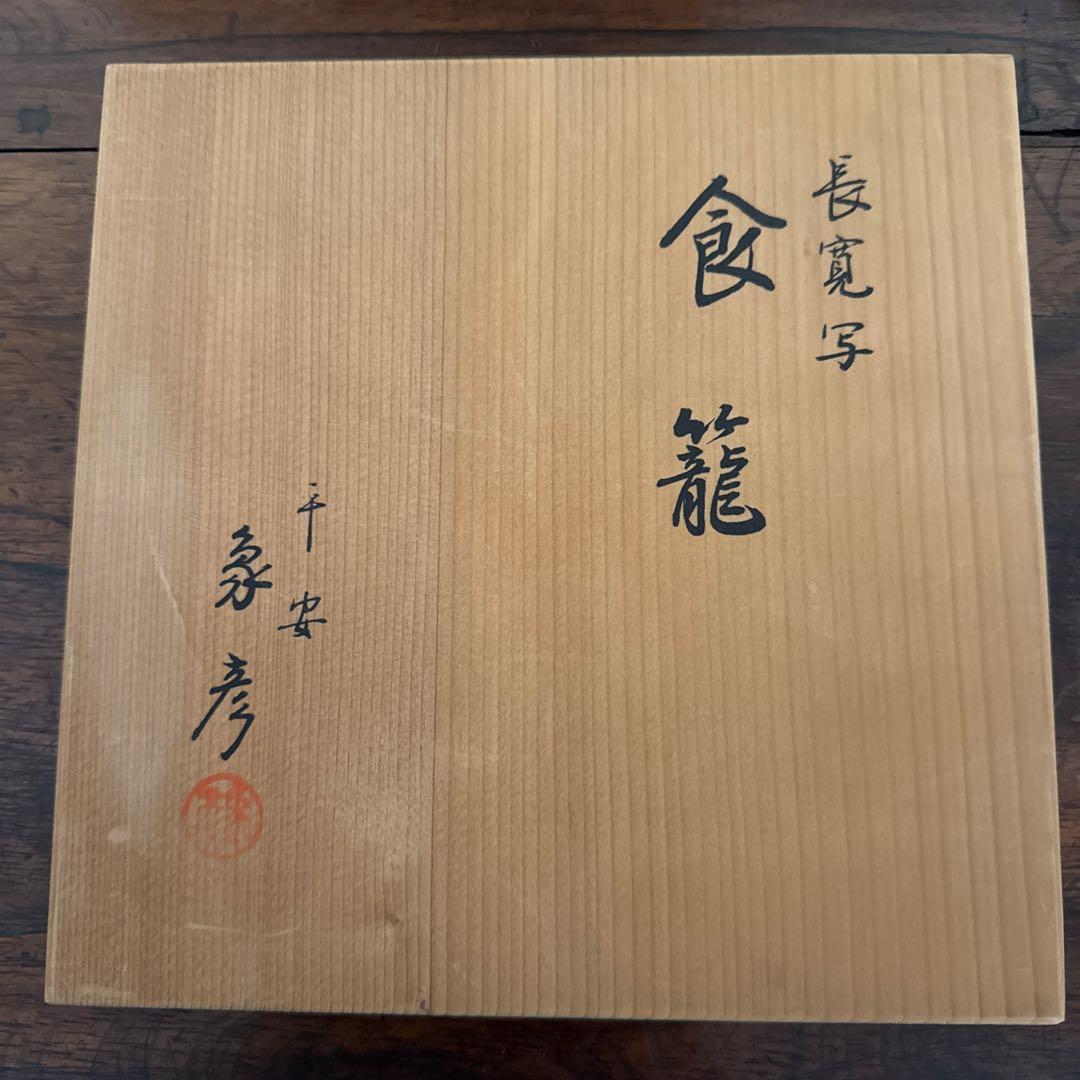 長寛写
食籠
平安
象彦